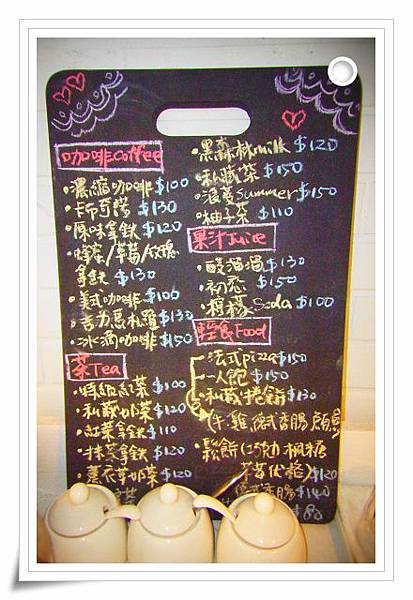 咖啡coffee
·濃縮咖啡$100
·卡布奇諾$130
·原味拿鐵$120
·蜂蜜/草莓/玫瑰
拿鐵$130
·美式咖啡$100
·吉力馬札羅$130
·冰滴咖啡$150
茶Tea
·特級紅茶$100
·私藏奶茶$120
·紅葉拿鐵$110
·抹茶拿鐵$120
·薰衣草奶茶$120
·黑森林milk $120
·私藏茶$150
·浪漫Summer$150
·柚子茶 $110
果汁Juice
·酸溜溜$130
·初戀 $150
·檸檬Soda $100
輕食Food
·法式pizza$150
·一人飽$150
·私藏捲餅$130
(牛.雞.德式香腸.鮪魚)
·鬆餅(巧克力.楓糖
草莓優格)$120
德式香腸$140